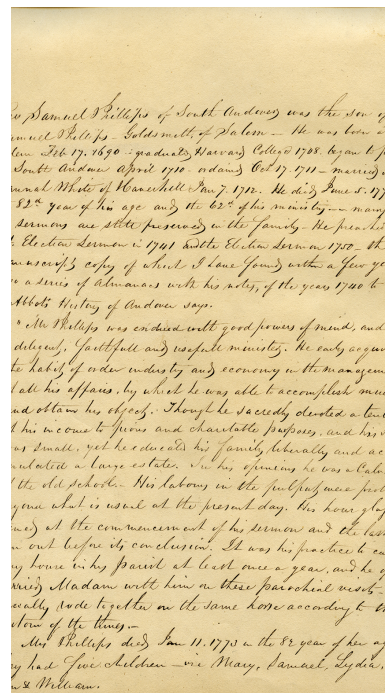 Samuel Phillips of South Andover was the son of
Samuel Phillips - Goldsmith, of Salem - He was born
Feb 17. 1690 - graduated Harvard College 1708. began to
South Andover april 1710 - ordained Oct 17. 1711 - married
White of Haverhill Jan 7. 1712. He died June 5. 177
82d year of his age and the 62d of his ministry - many
sermons are still preserved in the family - He preached
Election Sermon in 1741 and the Election Sermon 1750 - the
manuscript copy of which I have found within a few
a series of almanacs with his notes, of the years 1740 to
Abbots History of Andover says.
" Mr Phillips was endued with good powers of mind, and
diligent, faithfull and usefull minister. He early acqui
the habit of order industry and economy in the manageme
all his affairs, by which he was able to accomplish mu
and obtain his object. Though he sacredly devoted a tent
his income to pious and charitable purposes, and his
was small, yet he educated his family liberally and ac
a large estate. In his opinions he was a Calv
the old school. His labours in the pulpit were
yond what is usual at the present day. His hour gla
ned at the commencement of his sermon and the last
out before its conclusion. It was his practice to
house in his parish at least once a year, and he
carried Madam with him on these parochial visits -
rode together on the same horse according to
tom of the times. -
Mrs Phillips died Jan 11. 1773 in the 82 year of her a
had five children - viz Mary, Samuel, Lydia,
& William.